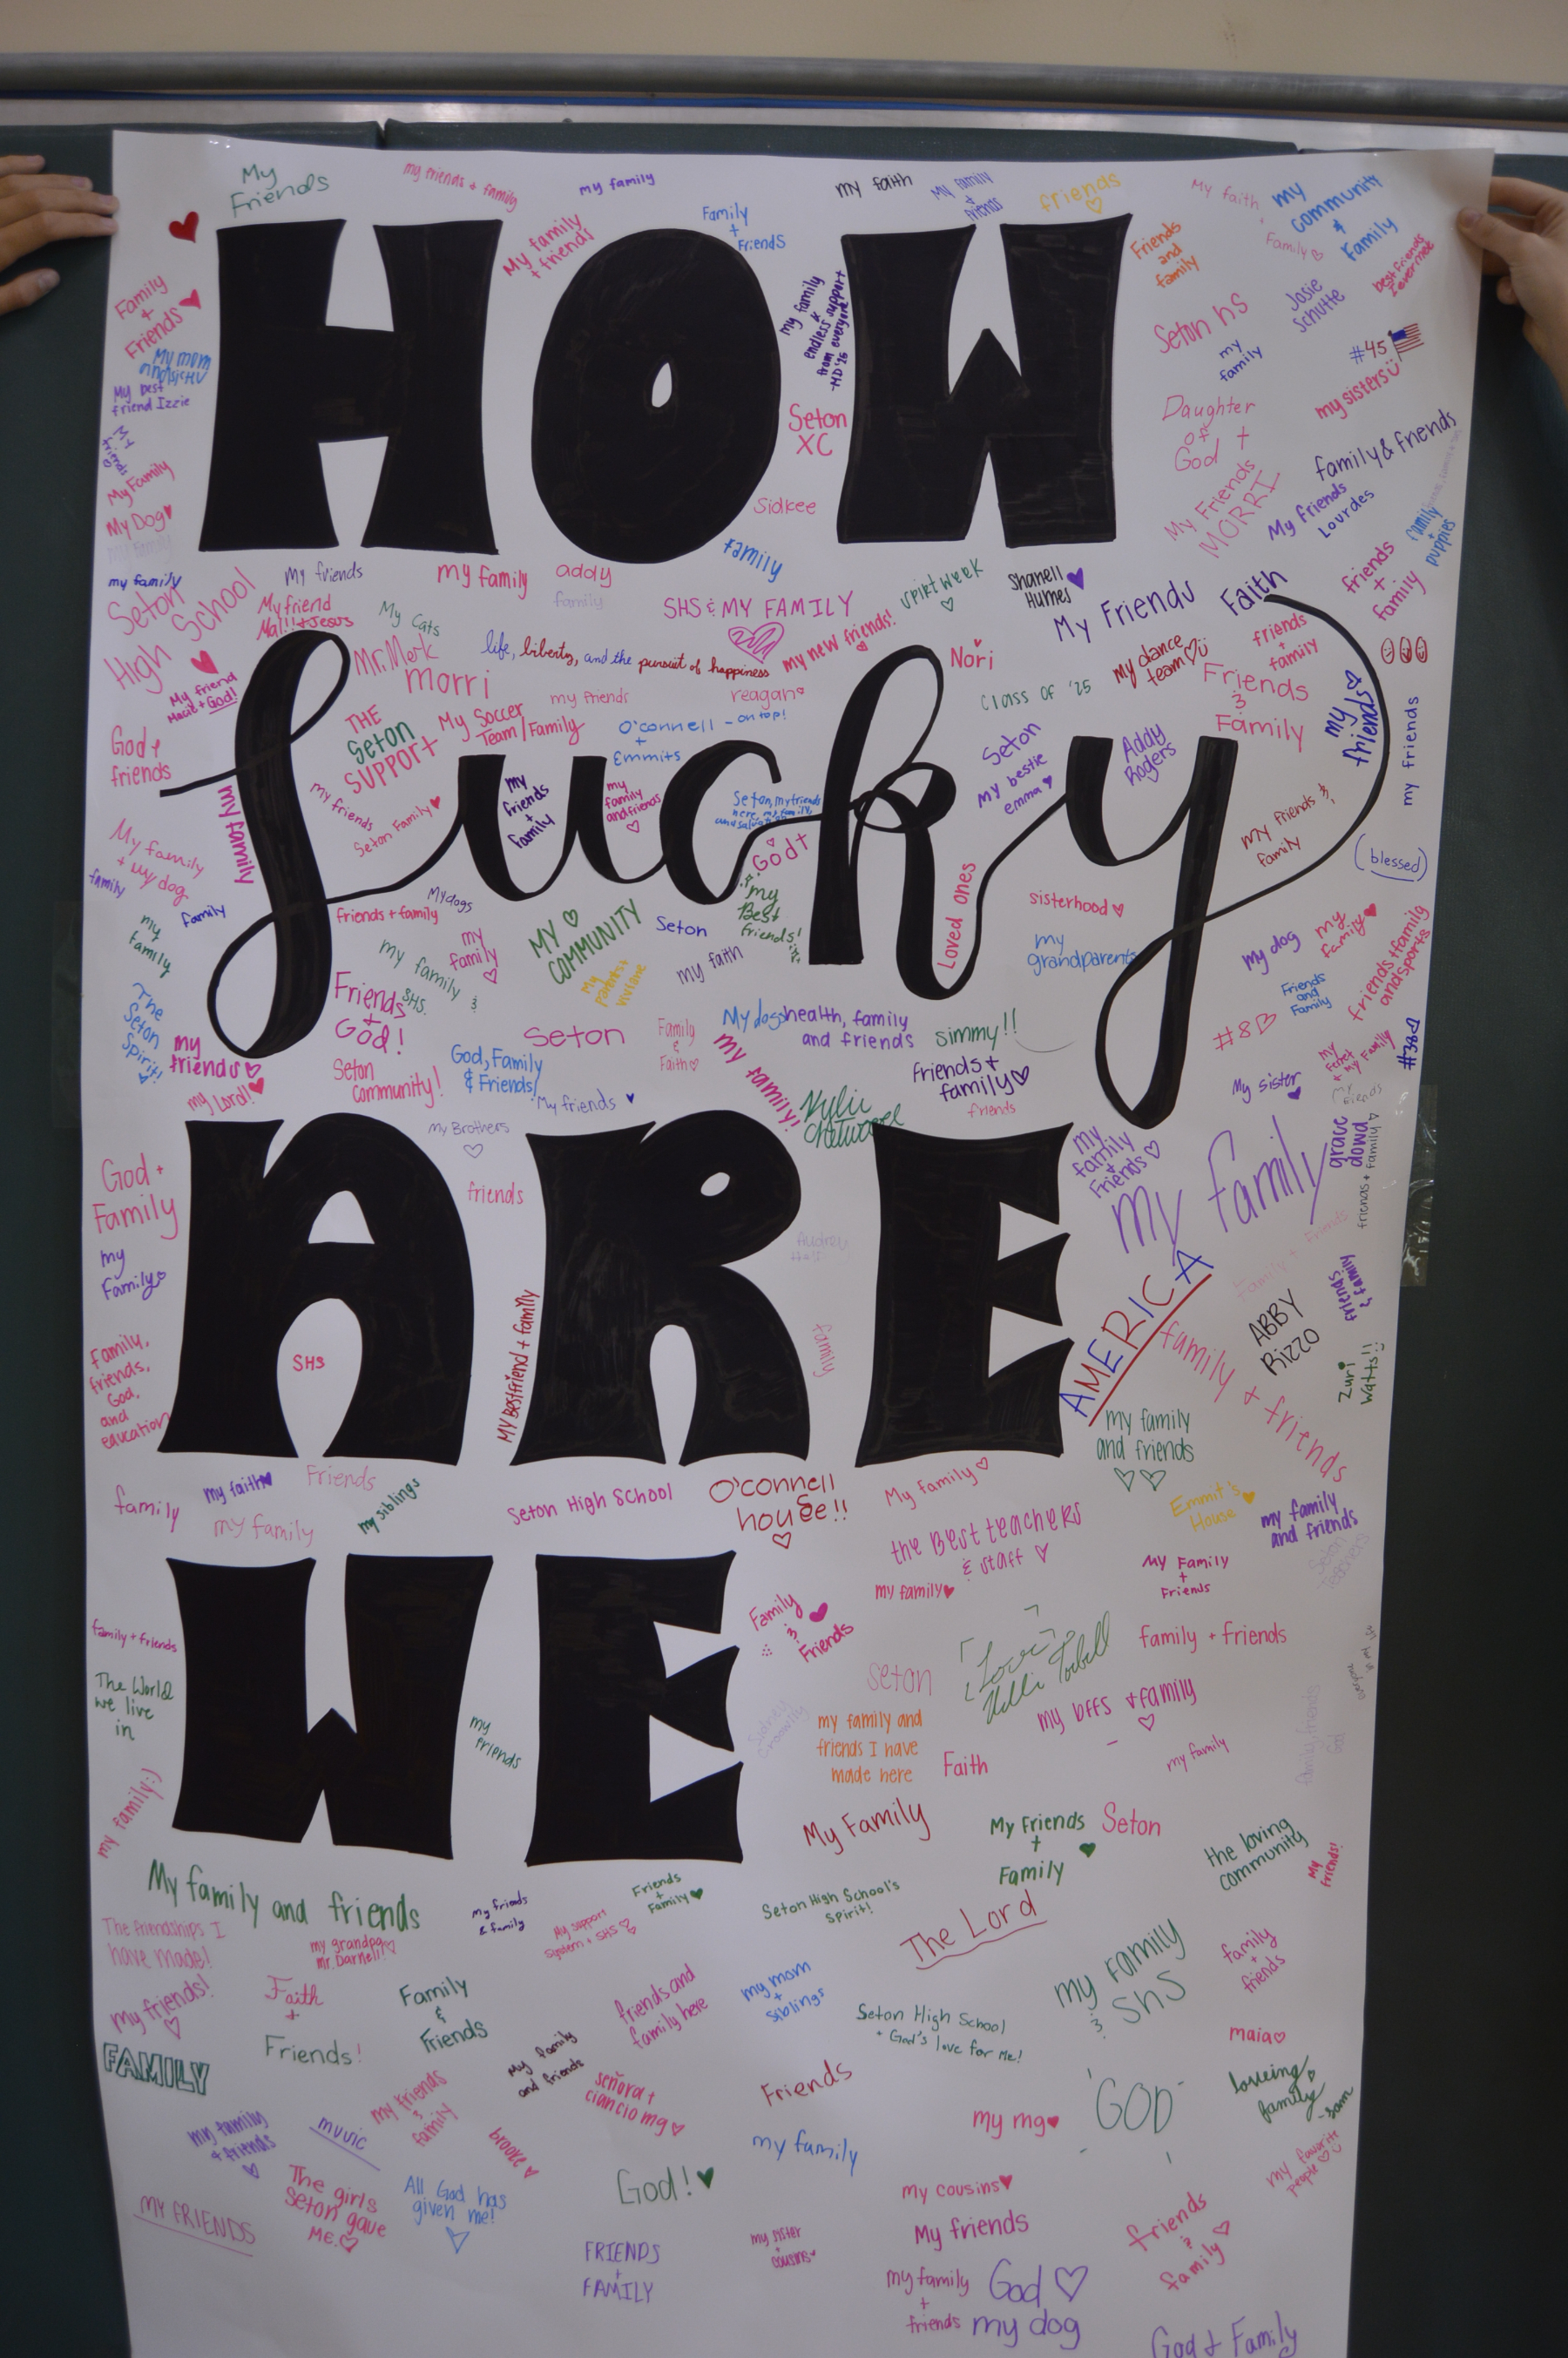 HOW
Lucky
ARE
WE
My
Friends
my friends + family
my family
My family
+ friends
Family
+
Friends
my faith
My family
+
friends
friends
Friends
and
family
My faith
+
Family
my
community
&
Family
best friends
I ever met
Family
+
Friends
my family
&
endless support
from everyone
Seton HS
Josie
Schutte
my
family
#45
my sisters
My mom
My best
friend Izzie
My
friends
My Family
My Dog
My Family
Seton
XC
Sidkee
Family
Daughter
of
God
family & friends
My Friends
MORRI
My Friends
Lourdes
family
+
puppies
my family
My friends
my family
addy
family
SHS & MY FAMILY
spirt week
Shanell
Humes
My Friends
Faith
friends
+
family
Seton
High
School
My friend
Mal!! + Jesus
My Cats
life, liberty, and the pursuit of happiness
my new friends!
Nori
my dance
team
friends
+
family
Mr. Merk
morri
my friends
reagan
Class of '25
Friends
&
Family
my
friends
my friends
My friend
Macie + God!
God +
friends
THE
Seton
SUPPORT
My Soccer
Team/Family
O'connell - on top!
+
Emmits
Seton
my bestie
emma
Addy
Rogers
my family
my friends
Seton Family
my
friends
+
family
my
family
and friends
Seton, my friends
here, my family,
God +
my
Best
friends!
my friends &
family
(blessed)
My family
+ my dog
family
family
my
family
friends + family
My dogs
my family &
SHS
my
family
MY
COMMUNITY
Seton
my faith
Loved ones
sisterhood
my
grandparents
my dog
my
family
friends + family
and sports
Friends
and
Family
The
Seton
Spirit!
my
friends
my Lord!
Friends
+
God!
Seton
Community!
God, Family
& Friends!
Seton
Family
&
Faith
My dogs
health, family
and friends
simmy!!
#8
#38
my family!
friends +
family
friends
My sister
My
Friends
My friends
Kylie
Chetwood
my Brothers
friends
God +
Family
my
Family
my
family
+
Friends
my family
grace
dowd
friends + family
Family + Friends
AMERICA
family & friends
ABBY
Rizzo
friends
& family
Zuri
Watts!!
Family,
friends,
God,
and
education
SHS
MY Bestfriend + family
family
my family
and friends
family
my faith
Friends
my family
my siblings
Seton High School
O'connell
house!!
My Family
the Best teachers
& staff
my family
Emmit's
House
my family
and friends
My Family
+
Friends
Seton
Teachers
family + friends
The World
we live
in
my
friends
Family
&
Friends
Seton
Love
family + friends
my bffs + family
my family and
friends I have
made here
Faith
my family
family, friends
God
my family :)
My Family
My Friends
+
Family
Seton
the loving
community
My
friends!
My family and friends
My friends
& family
Friends
+
Family
My support
system + SHS
Seton High School's
Spirit!
The Lord
The friendships I
have made!
my grandpa
mr. Darnell!
my family
& SHS
family
+
friends
my friends!
Faith
+
Friends!
Family
&
Friends
friends and
family here
my mom
+
siblings
Seton High School
+ God's love for me!
maia
FAMILY
My family
and friends
señora +
ciancio mg
Friends
my mg
GOD
loveing
family
-Sam
my family
+ friends
music
my friends
&
family
brooke
my family
my favorite
people
MY FRIENDS
The girls
Seton gave
ME.
All God has
given me!
God!
my cousins
My friends
friends
&
family
my sister
+
cousins
FRIENDS
+
FAMILY
my family
+
friends
God
my dog
God & Family